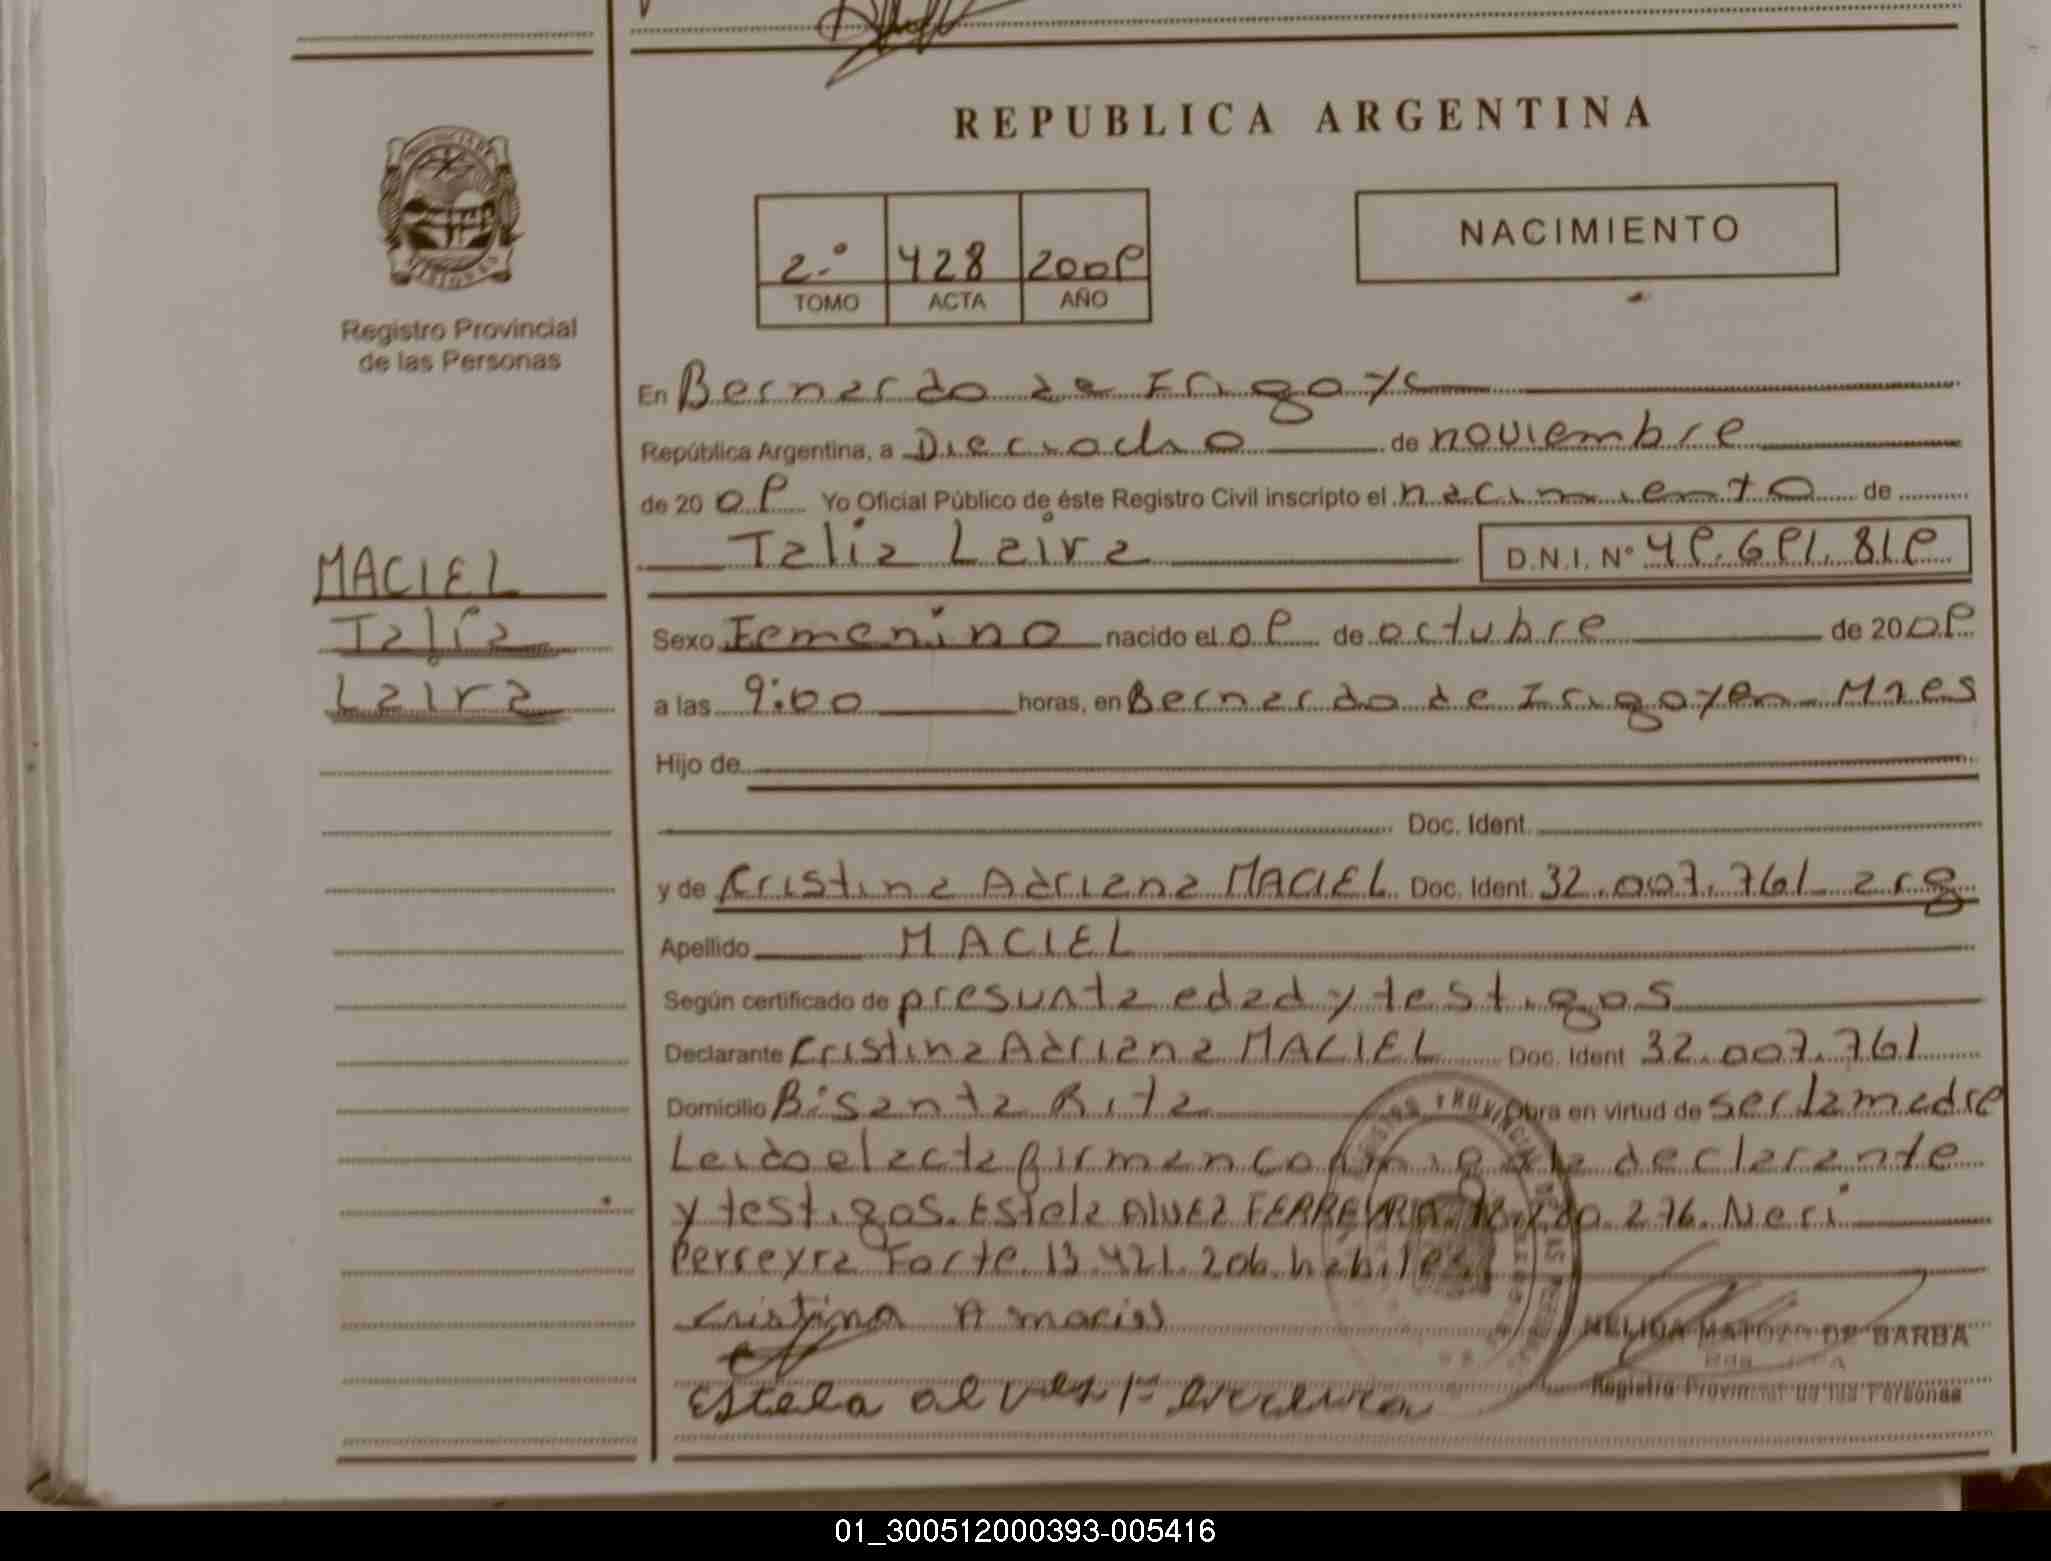 REPUBLICA ARGENTINA
2.º 428 2009
TOMO ACTA AÑO
NACIMIENTO
Registro Provincial
de las Personas
MACIEL
Talia
Laira
En Bernardo de Irigoye
República Argentina, a Dieciocho de noviembre
de 20 09 Yo Oficial Público de éste Registro Civil inscripto el nacimiento de
Talia Laira D.N.I. Nº 49.691.819
Sexo Femenino nacido el 09 de octubre de 2009
a las 9:00 horas, en Bernardo de Irigoyen Mnes
Hijo de
Doc. Ident.
y de Cristina Adriana MACIEL Doc. Ident. 32.007.761 arg
Apellido MACIEL
Según certificado de presunta edad y testigos
Declarante Cristina Adriana MACIEL Doc. Ident 32.007.761
Domicilio Bº Santa Rita Obra en virtud de ser la madre
Leido el acta firman conmigo la declarante
y testigos. Estela ALVEZ FERREYRA. 276. Neri
Perreyra Forte. 13.421.206. habiles
Cristina A maciel
Estela alvez
NELIDA MATOZO DE BARBA
Registro Provincial de las Personas
01_300512000393-005416